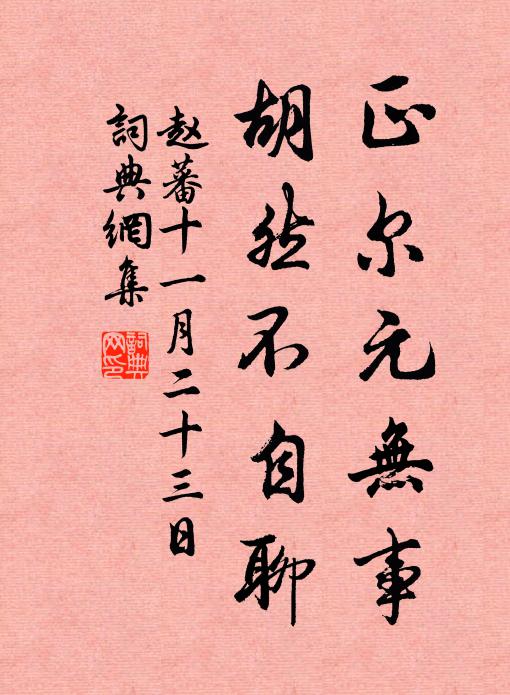 正尔元無事
胡然不自聊
赵蕃十一月二十三日
詞典網集
詞典网印